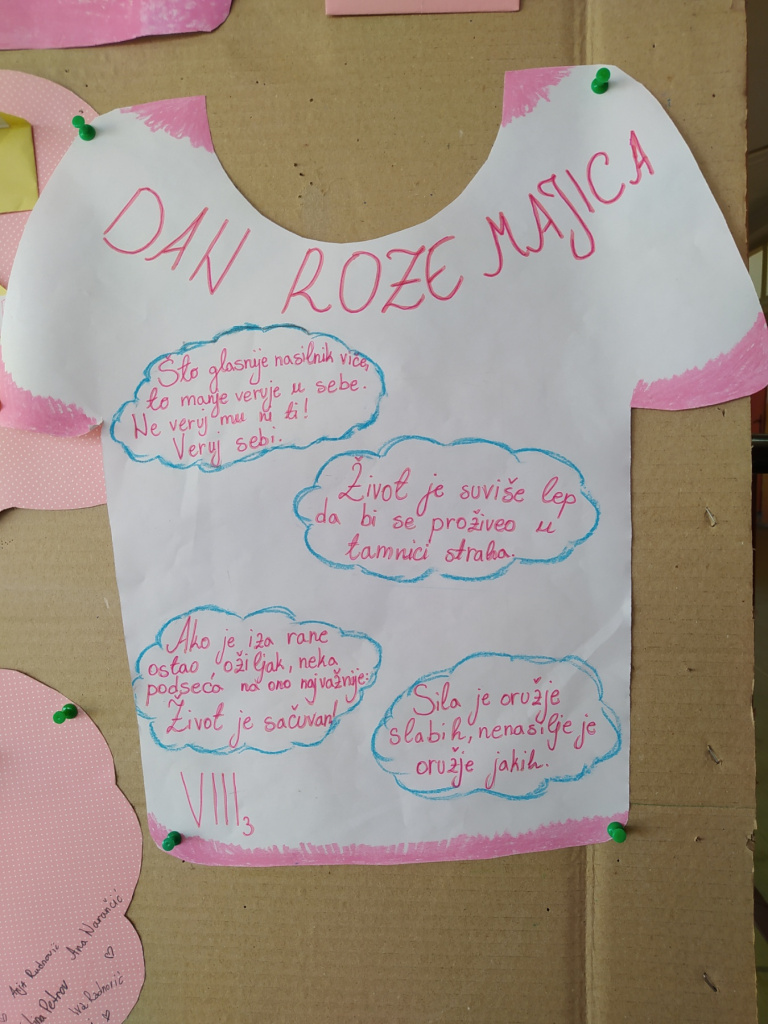 DAN ROZE MAJICA
Što glasnije nasilnik viče,
to manje veruje u sebe.
Ne veruj mu ni ti!
Veruj sebi.
Život je suviše lep
da bi se proživeo u
tamnici straha.
Ako je iza rane
ostao ožiljak, neka
podseća na ono najvažnije:
Život je sačuvan!
Sila je oružje
slabih, nenasilje je
oružje jakih.
VIII3
Ana Narančić
Petrov